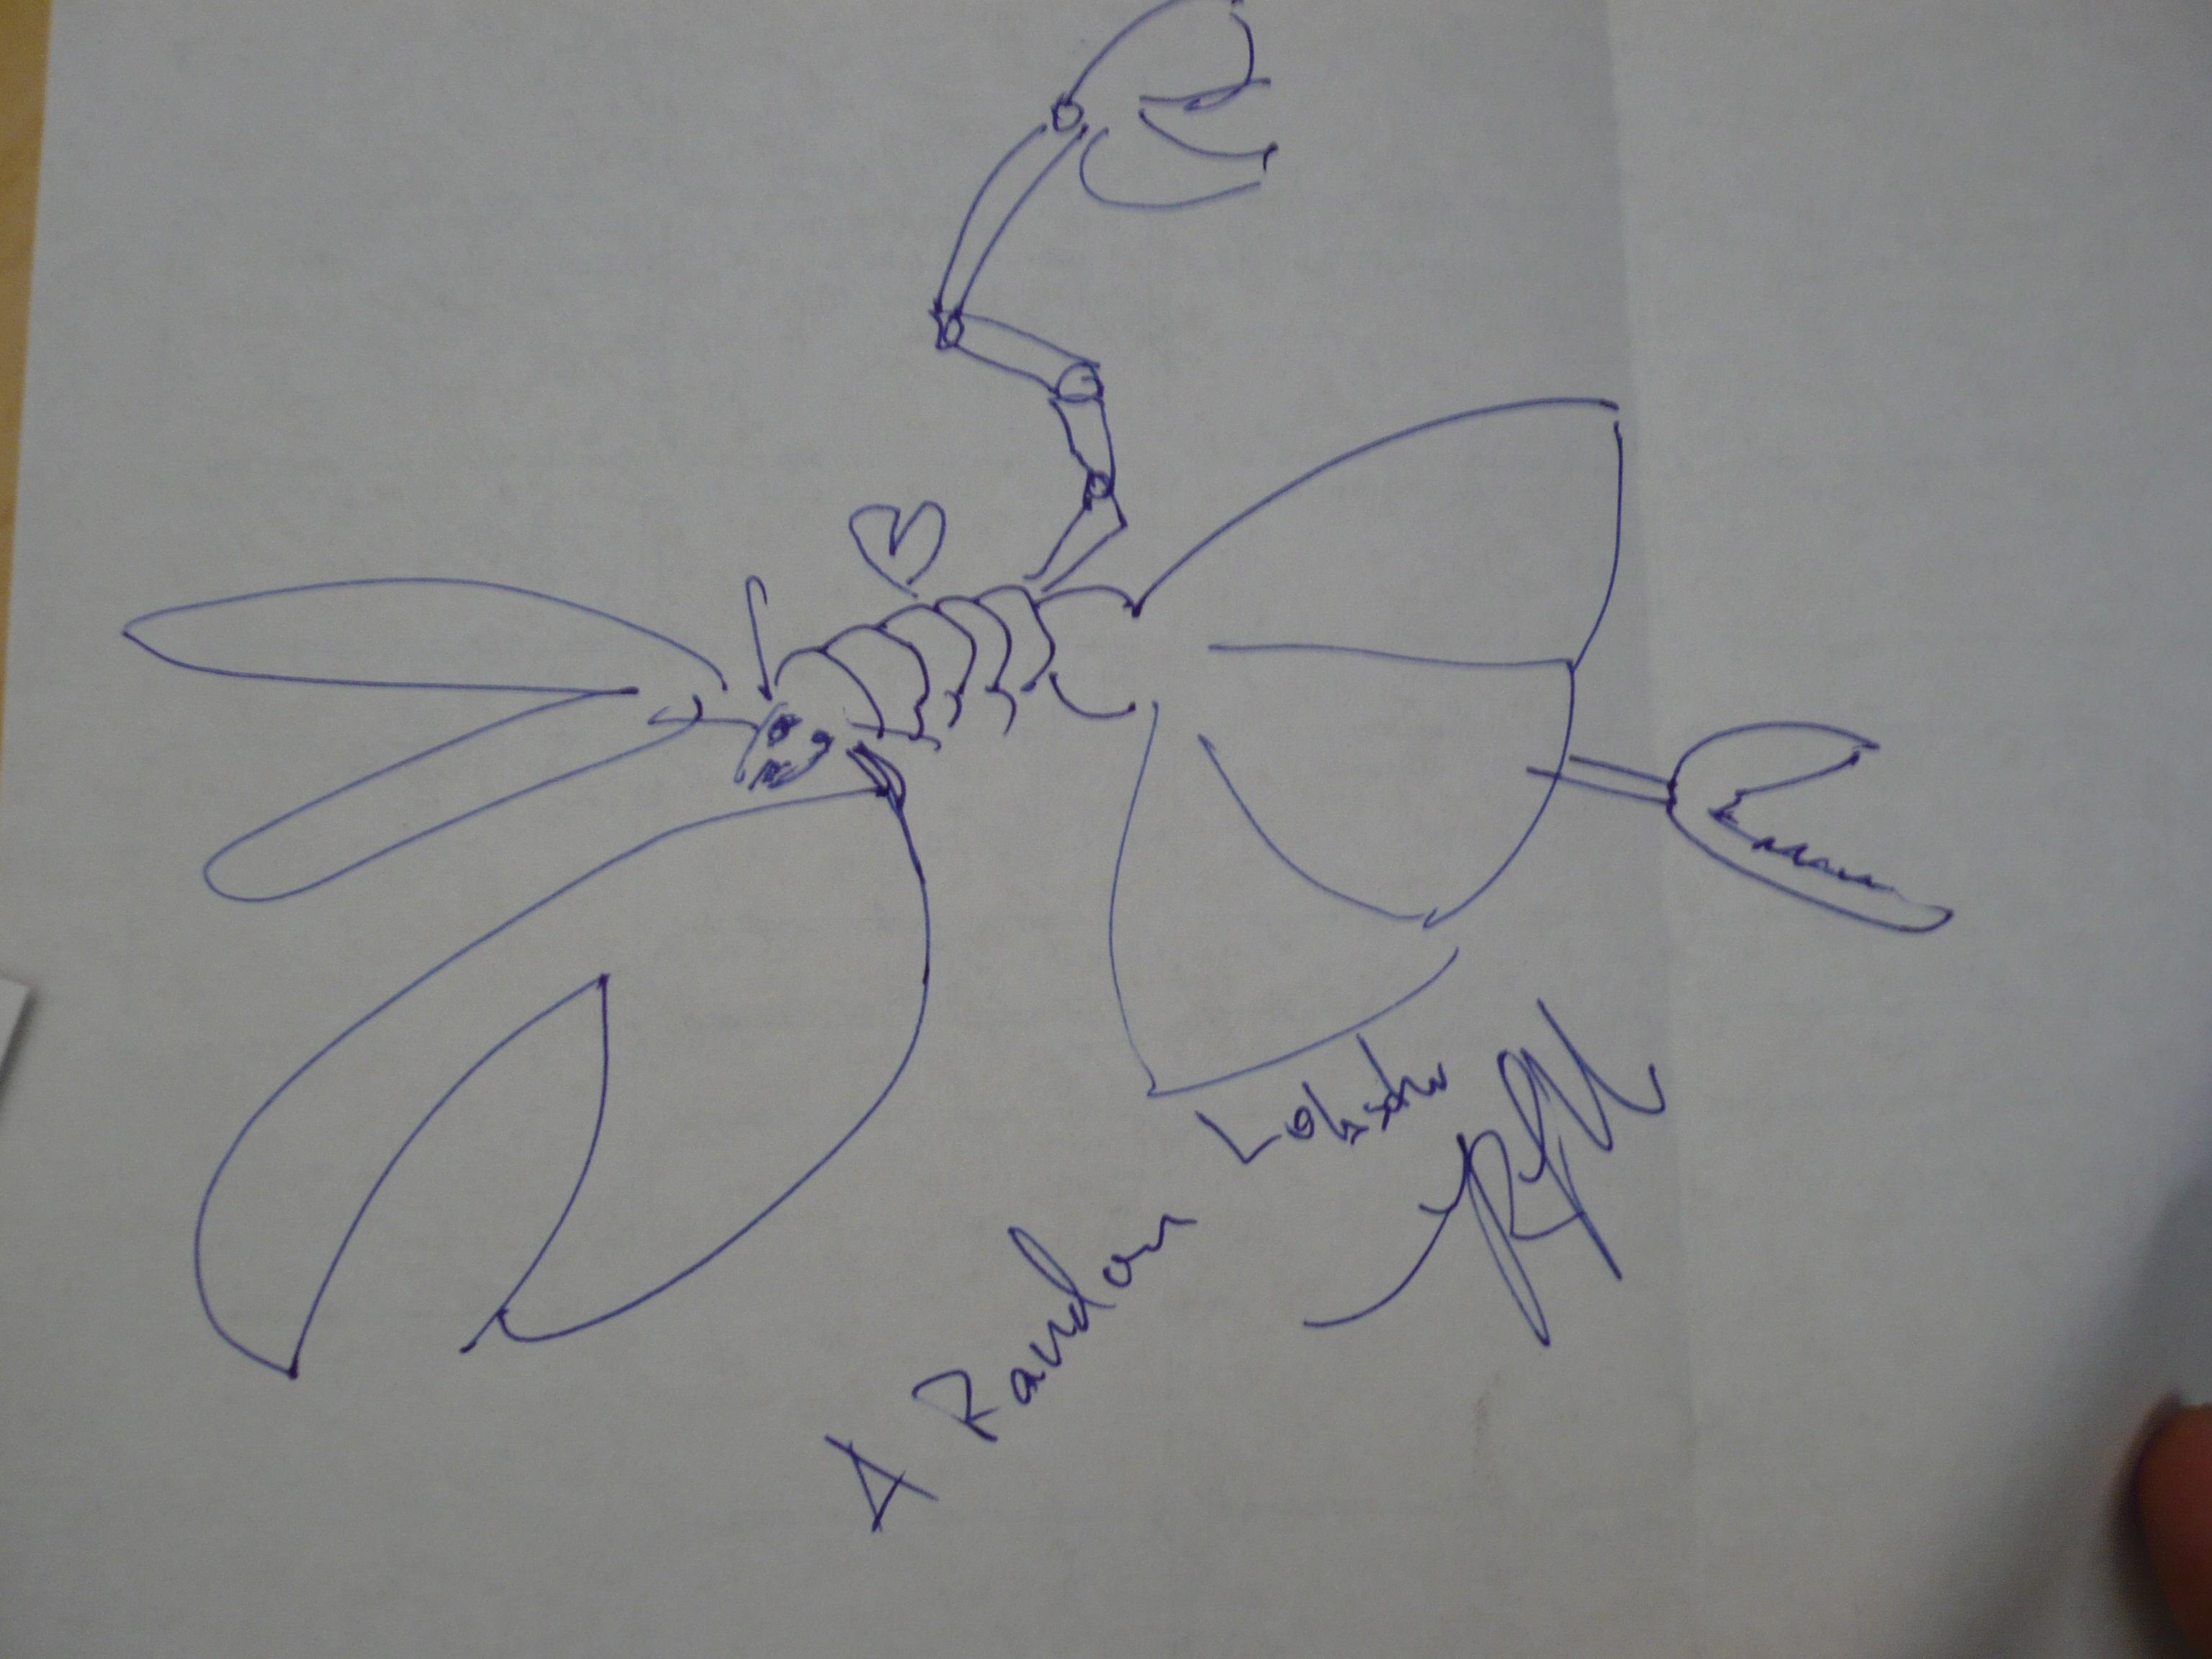 A Random Lobster